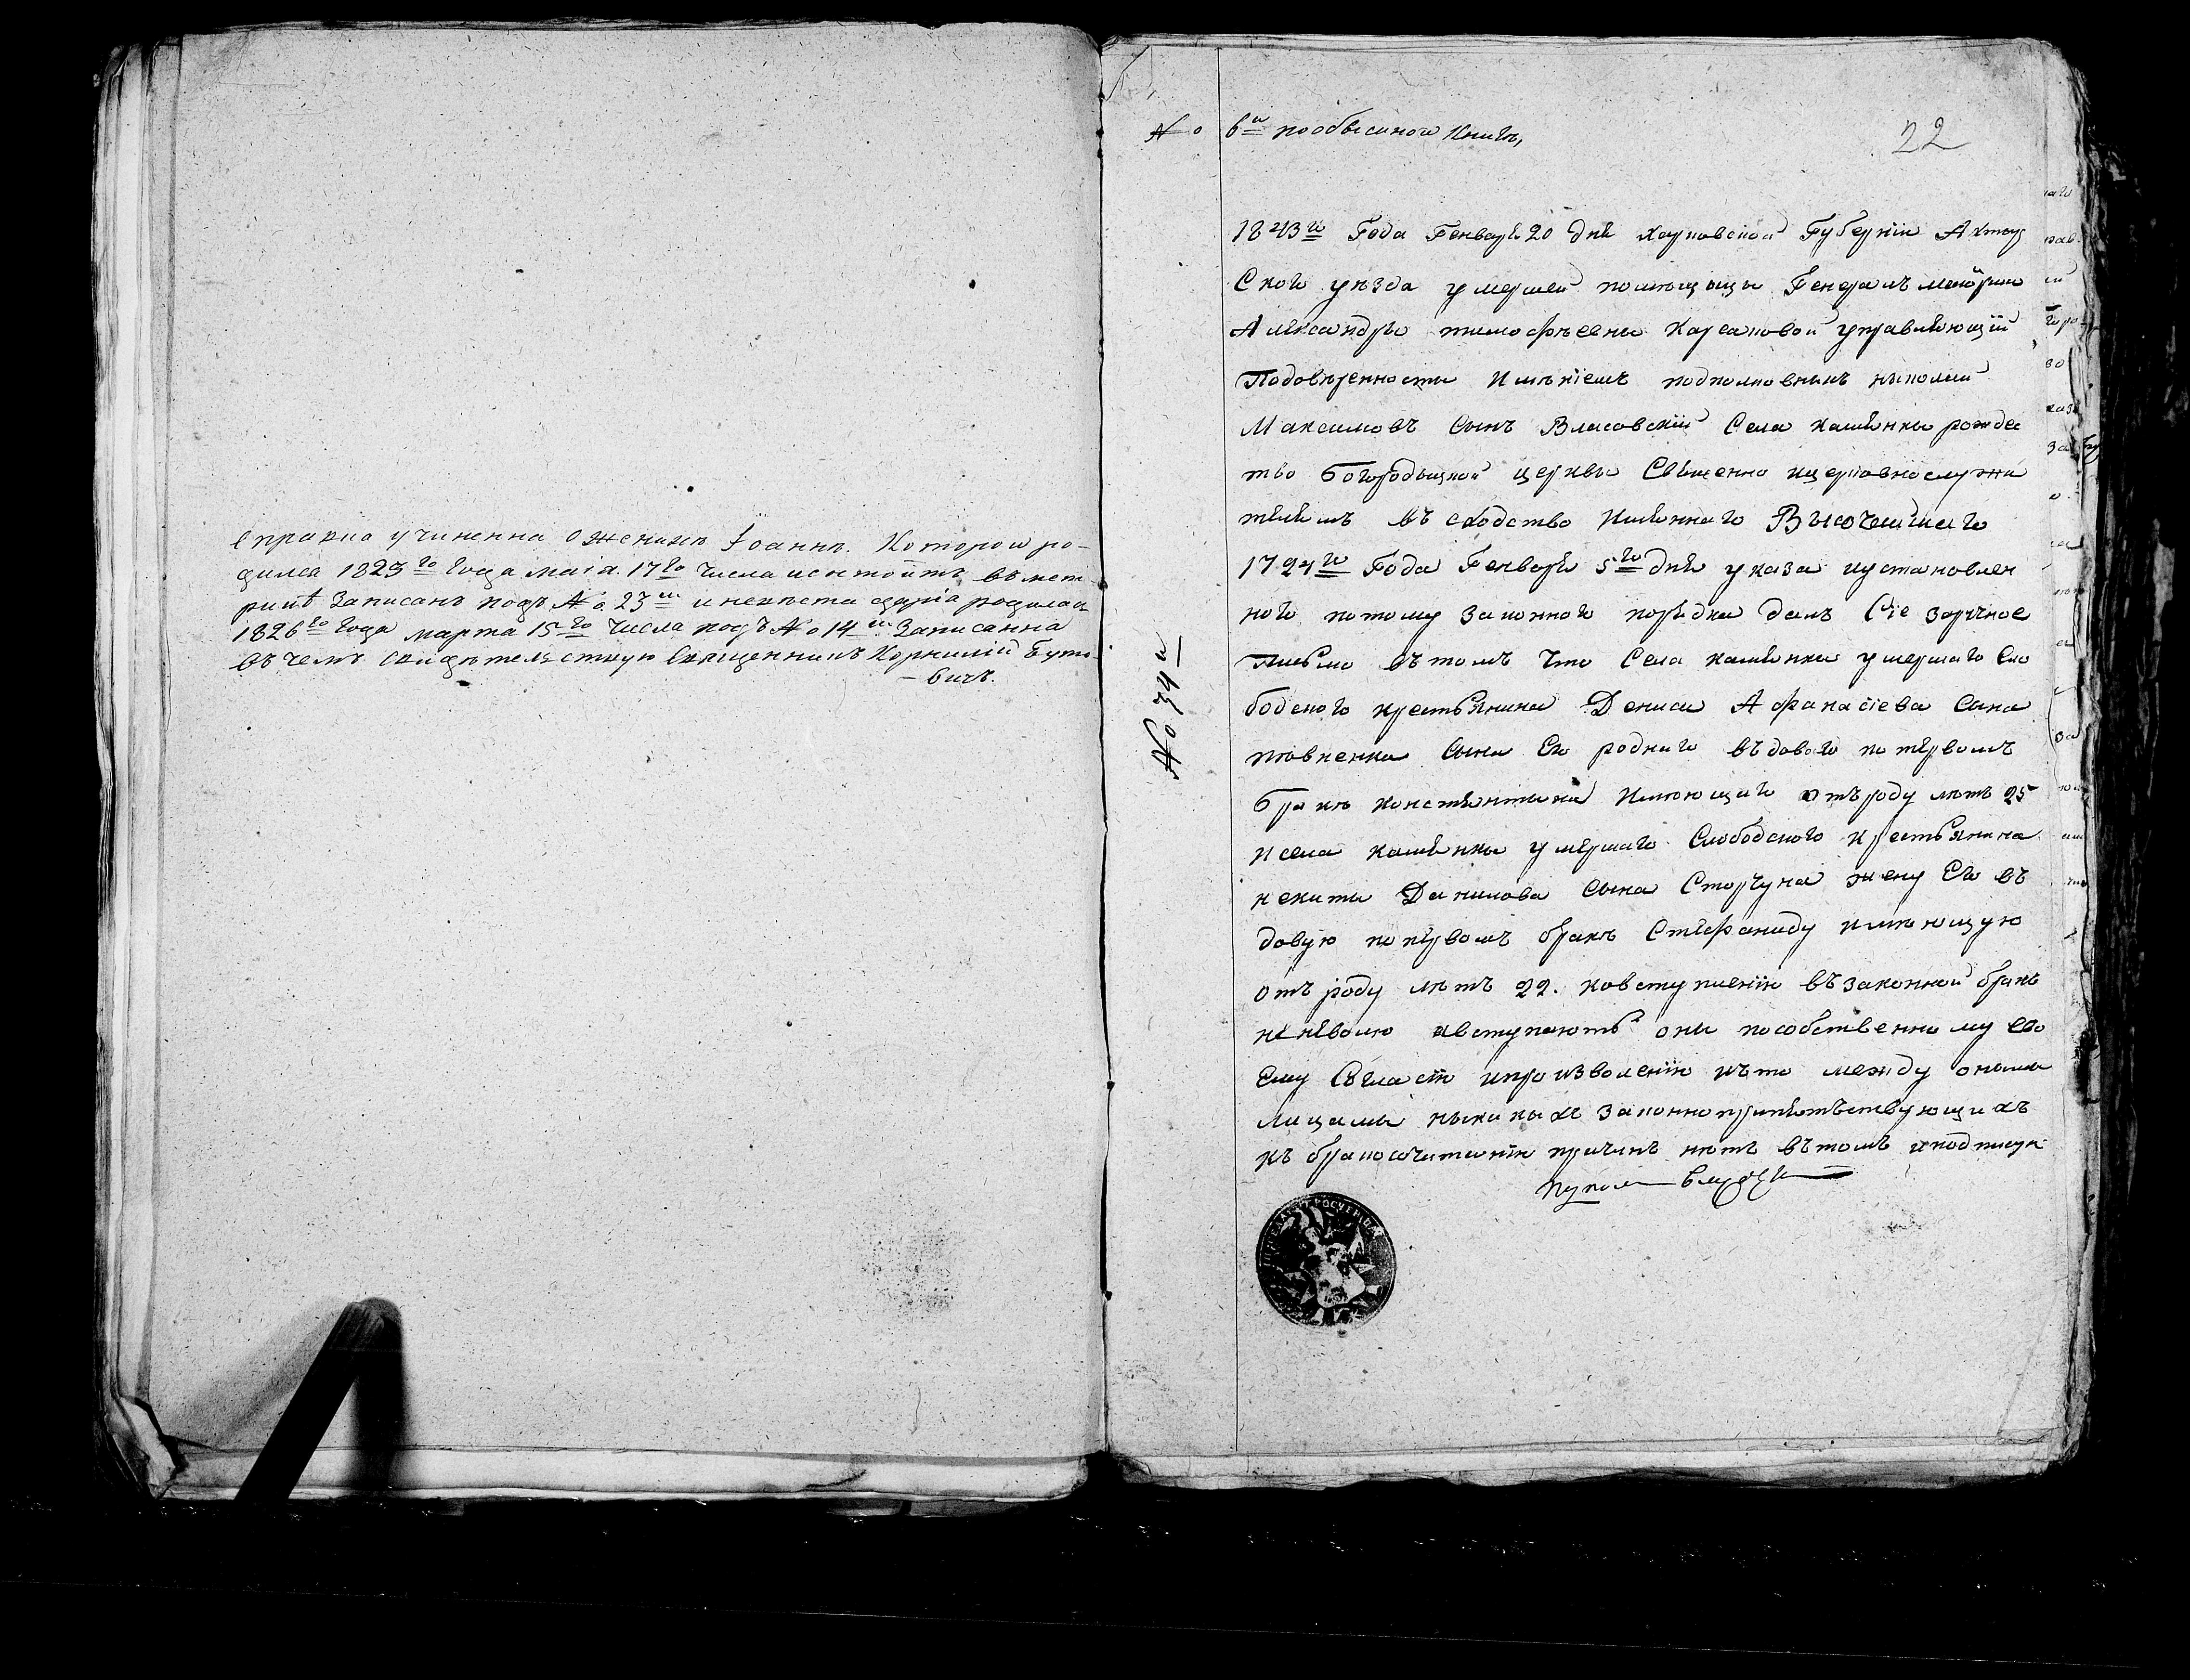 справка учиненна о женихѣ Іоаннѣ. Которой ро-
дился 1823го Года маія 17го числа и состоитъ въ мет
рикѣ Записанъ подъ № 23м и невѣста дарія родилась
1826го Года марта 15го Числа подъ № 14м Записанна
въ чемъ свидѣтельствую Священникъ Корнилій Буто
- вичъ.
№ 6й по обыскной Книгѣ,
22
1843го Года Генваря 20 дня харковской Губерніи Ахтыр
Ского уѣзда умершей помѣщицы Генералъ маіорши
Александры тимофѣевны Хрсановой управляющій
По довѣренности Имѣніемъ подполковникъ николай
Максимовъ Сынъ Власовскій Села камянки рождес
тво Богородицкой церквы Священно и церковнослужи
телямъ въ сходство Имяннаго Высочайшаго
1724го Года Генваря 5го дня указа и установлен
ного по тому законного порядка далъ Сіе заручное
Письмо въ томъ что Села камянки умершаго Сло
бодского крестьянина Дениса Афанасіева Сына
товкенка Сына Его роднаго вдового по первомъ
бракѣ константина Имеющаго отъ роду лѣтъ 25
и села камянки умершаго Слободского крестьянина
некиты Данилова Сына Сторчуна жену Его в
довую по первомъ бракѣ Стефаниду имеющую
отъ роду лѣтъ 22. ко вступленію въ законной бракъ
не неволю а вступаютъ они по собственному сво
Ему Согласію и произволенію и что между оными
лицами никакихъ законно препятствующихъ
къ бракосочитанію причинъ нѣтъ въ томъ и подписуюсь
№ 34й